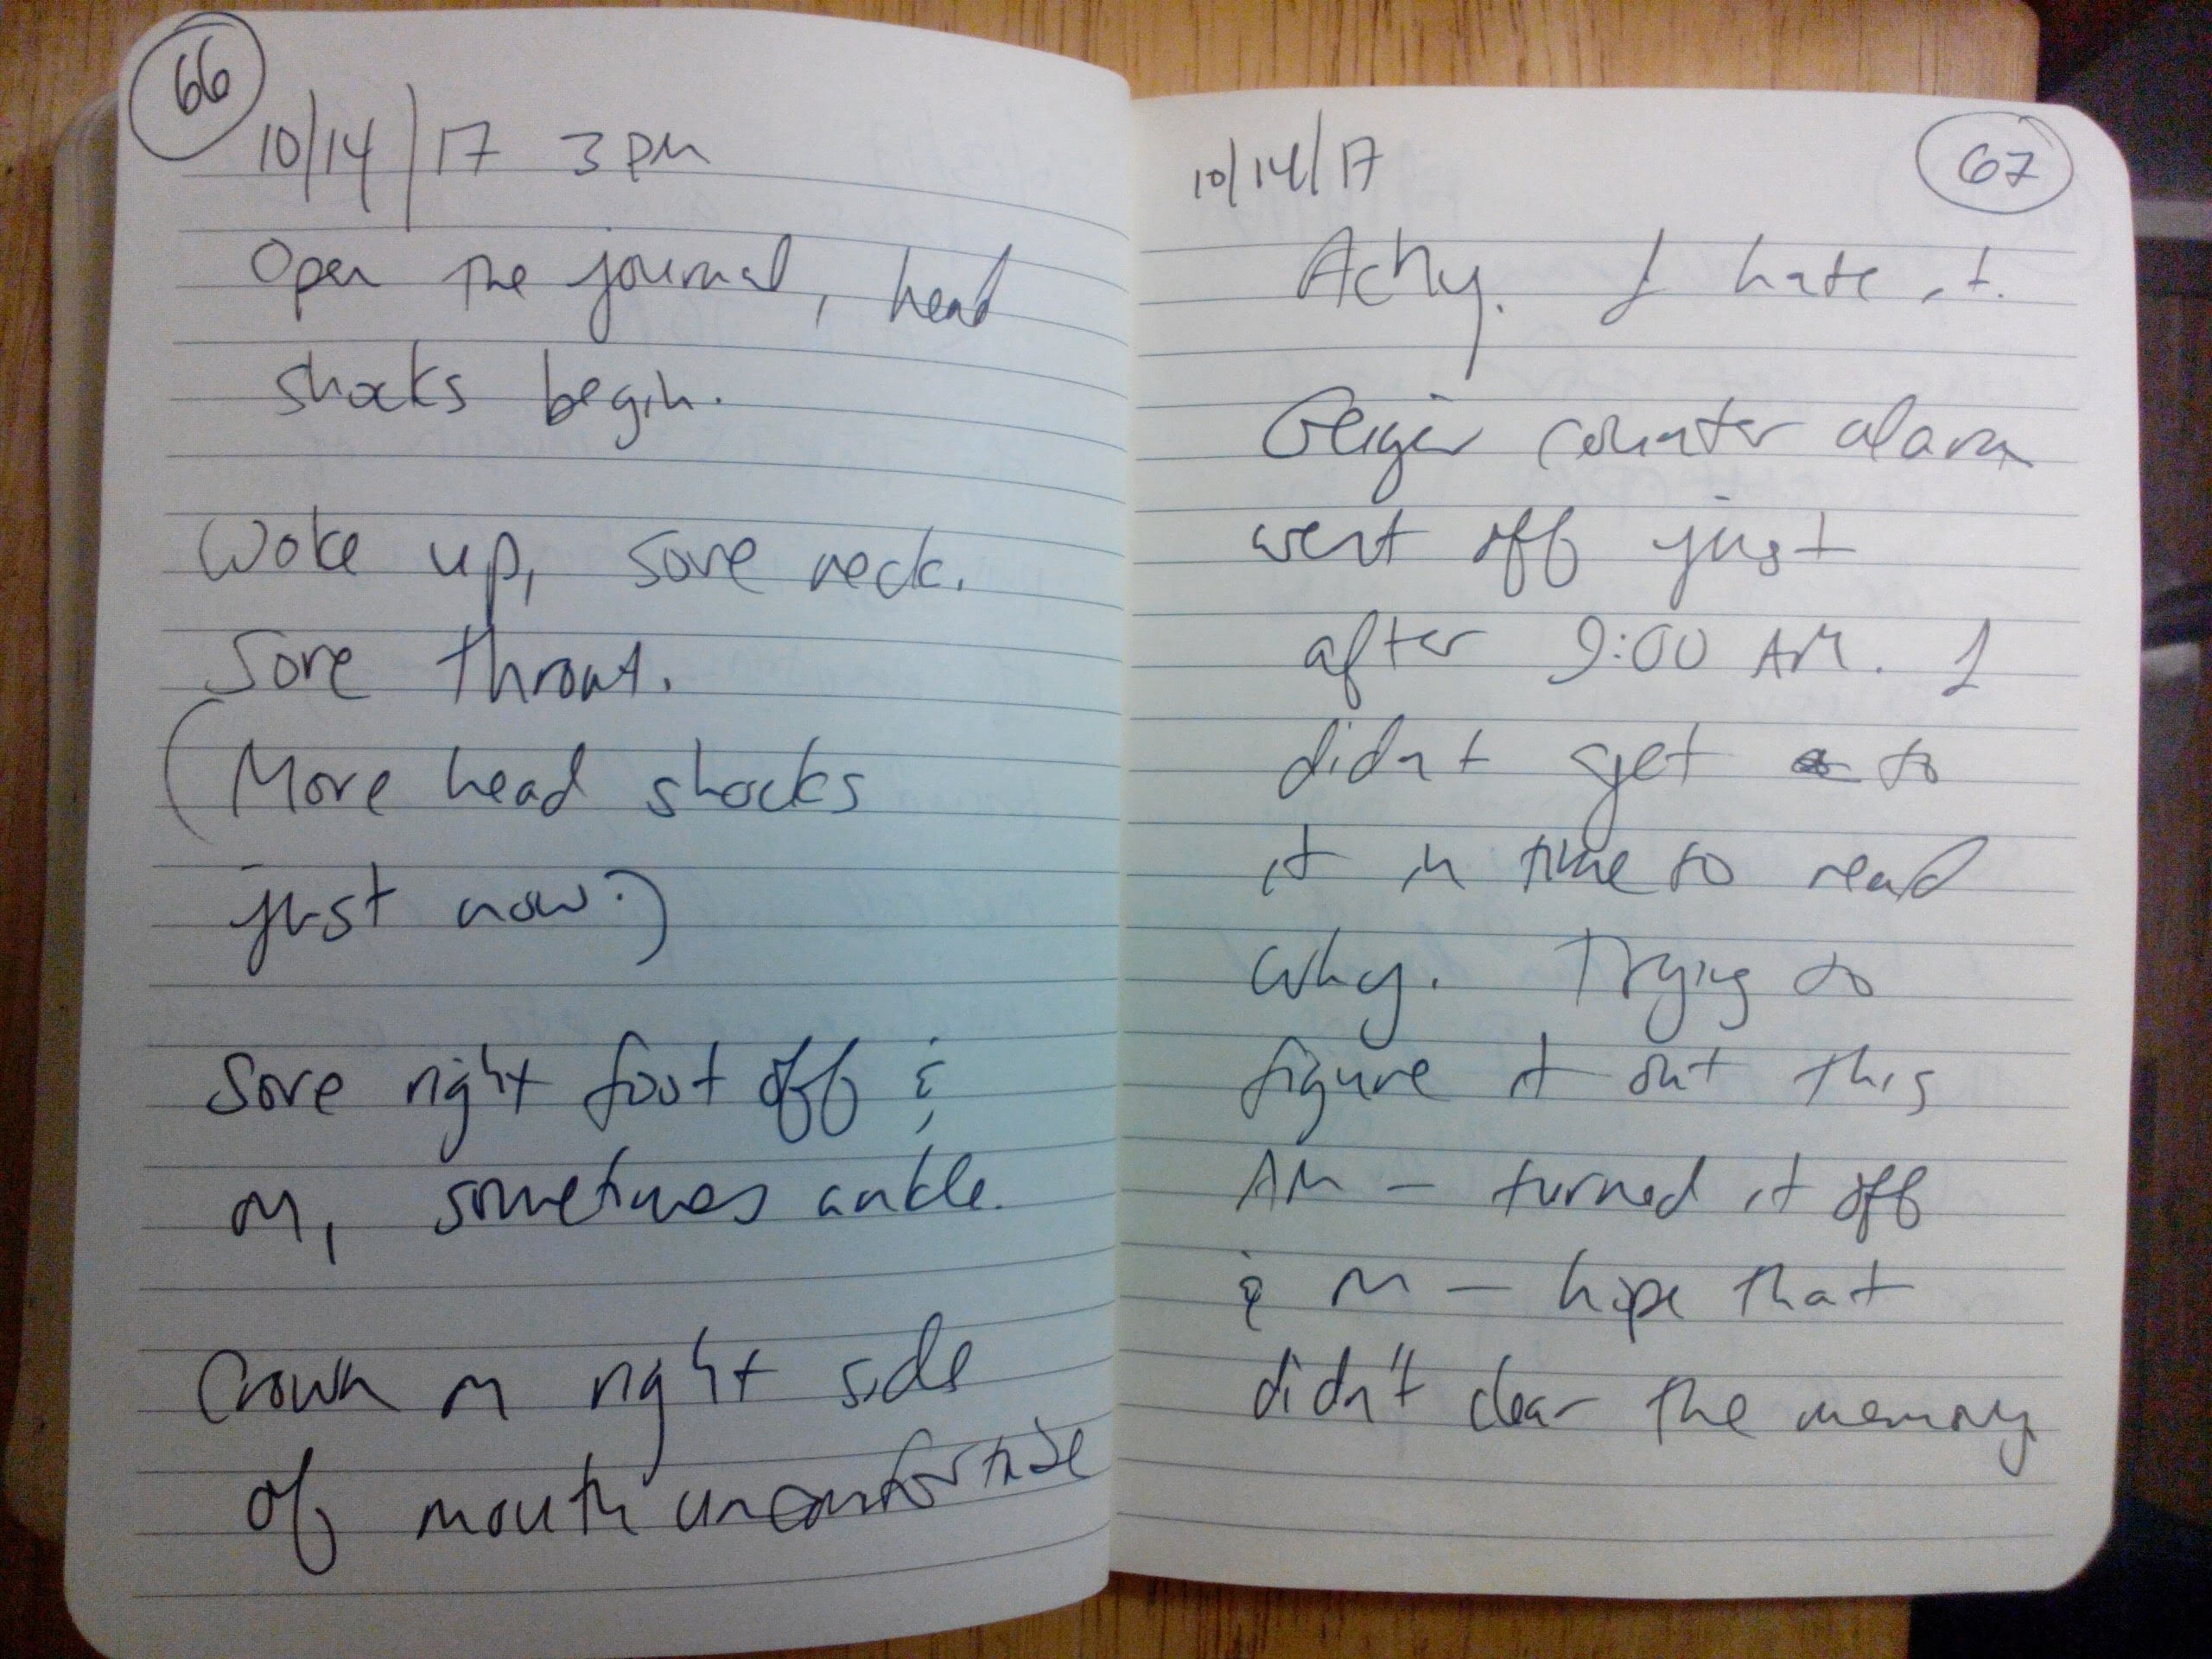 66
10/14/17 3 pm
Open the journal, head
shocks begin.
Woke up, sore neck.
Sore throat.
(More head shocks
just now.)
Sore right foot off &
on, sometimes ankle.
Crown on right side
of mouth uncomfortable
67
10/14/17
Achy. I hate it.
Geiger counter alarm
went off just
after 9:00 AM. I
didnt get to
it in time to read
why. Trying to
figure it out this
AM - turned it off
& on - hope that
didn't clear the memory